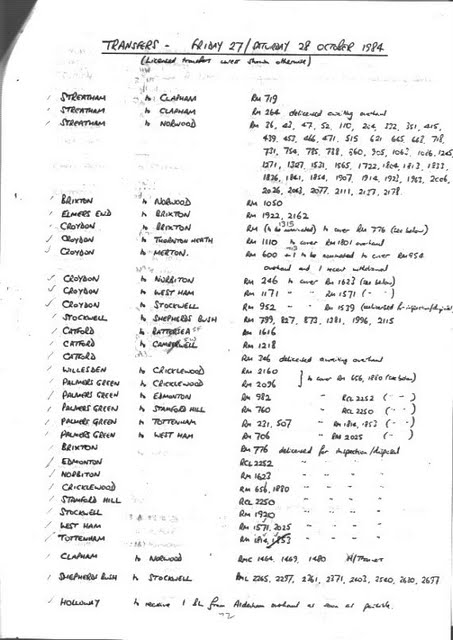 TRANSFERS - FRIDAY 27/SATURDAY 28 OCTOBER 1984
(Licensed transfers unless shown otherwise)
STREATHAM to CLAPHAM RM 719
STREATHAM to CLAPHAM RM 264 delicensed awaiting overhaul
STREATHAM to NORWOOD RM 36, 43, 47, 52, 110, 204, 332, 351, 415,
439, 453, 466, 471, 515 621, 665, 668, 718,
731, 754, 785, 788, 860, 905, 1063,
1571, 1722, 1804, 1813, 1833,
1836, 1841, 1854, 1907, 1914, 1923, 1963, 2006,
2026, 2043, 2077, 2111, 2137, 2178.
BRIXTON to NORWOOD RM 1050
ELMERS END to BRIXTON RM 1922, 2162
CROYDON to BRIXTON RM 1315 (to be nominated) to cover RM 776 (see below)
CROYDON to THORNTON HEATH RM 1110 to cover RM 1801 overhaul
CROYDON to MERTON. RM 600 and 1 to be nominated to cover RM 954
overhaul and 1 recent withdrawal
CROYDON to NORBITON RM 246 to cover RM 1623 (see below)
CROYDON to WEST HAM RM 1171 " RM 1571 ( " " )
CROYDON to STOCKWELL RM 952 " RM 1539 (delicensed for inspection/disposal)
STOCKWELL to SHEPHERDS BUSH RM 799, 827, 873, 1381, 1996, 2115
CATFORD to BATTERSEA RM 1616
CATFORD to CAMBERWELL RM 1218
CATFORD RM 346 delicensed awaiting overhaul
WILLESDEN to CRICKLEWOOD RM 2160
PALMERS GREEN to CRICKLEWOOD RM 2096 } to cover RM 656, 1880 (see below)
PALMERS GREEN to EDMONTON RM 982 " RCL 2252 ( " " )
PALMERS GREEN to STAMFORD HILL RM 760 " RCL 2250 ( " " )
PALMERS GREEN to TOTTENHAM RM 231, 507 " RM 1814, 1853 ( " " )
PALMERS GREEN to WEST HAM RM 706 " RM 2025 ( " " )
BRIXTON RM 776 delicensed for inspection/disposal
EDMONTON RCL 2252 " " "
NORBITON RM 1623 " " "
CRICKLEWOOD RM 656, 1880 " " "
STAMFORD HILL RCL 2250 " " "
STOCKWELL RM 1920 " " "
WEST HAM RM 1571, 2025 " " "
TOTTENHAM RM 1814, 1853 " " "
CLAPHAM to NORWOOD RMC 1464, 1469, 1480 T/Trainer
SHEPHERDS BUSH to STOCKWELL RML 2265, 2297, 2361, 2371, 2603, 2560, 2630, 2677
HOLLOWAY to receive 1 RML from Aldenham overhaul as soon as possible.